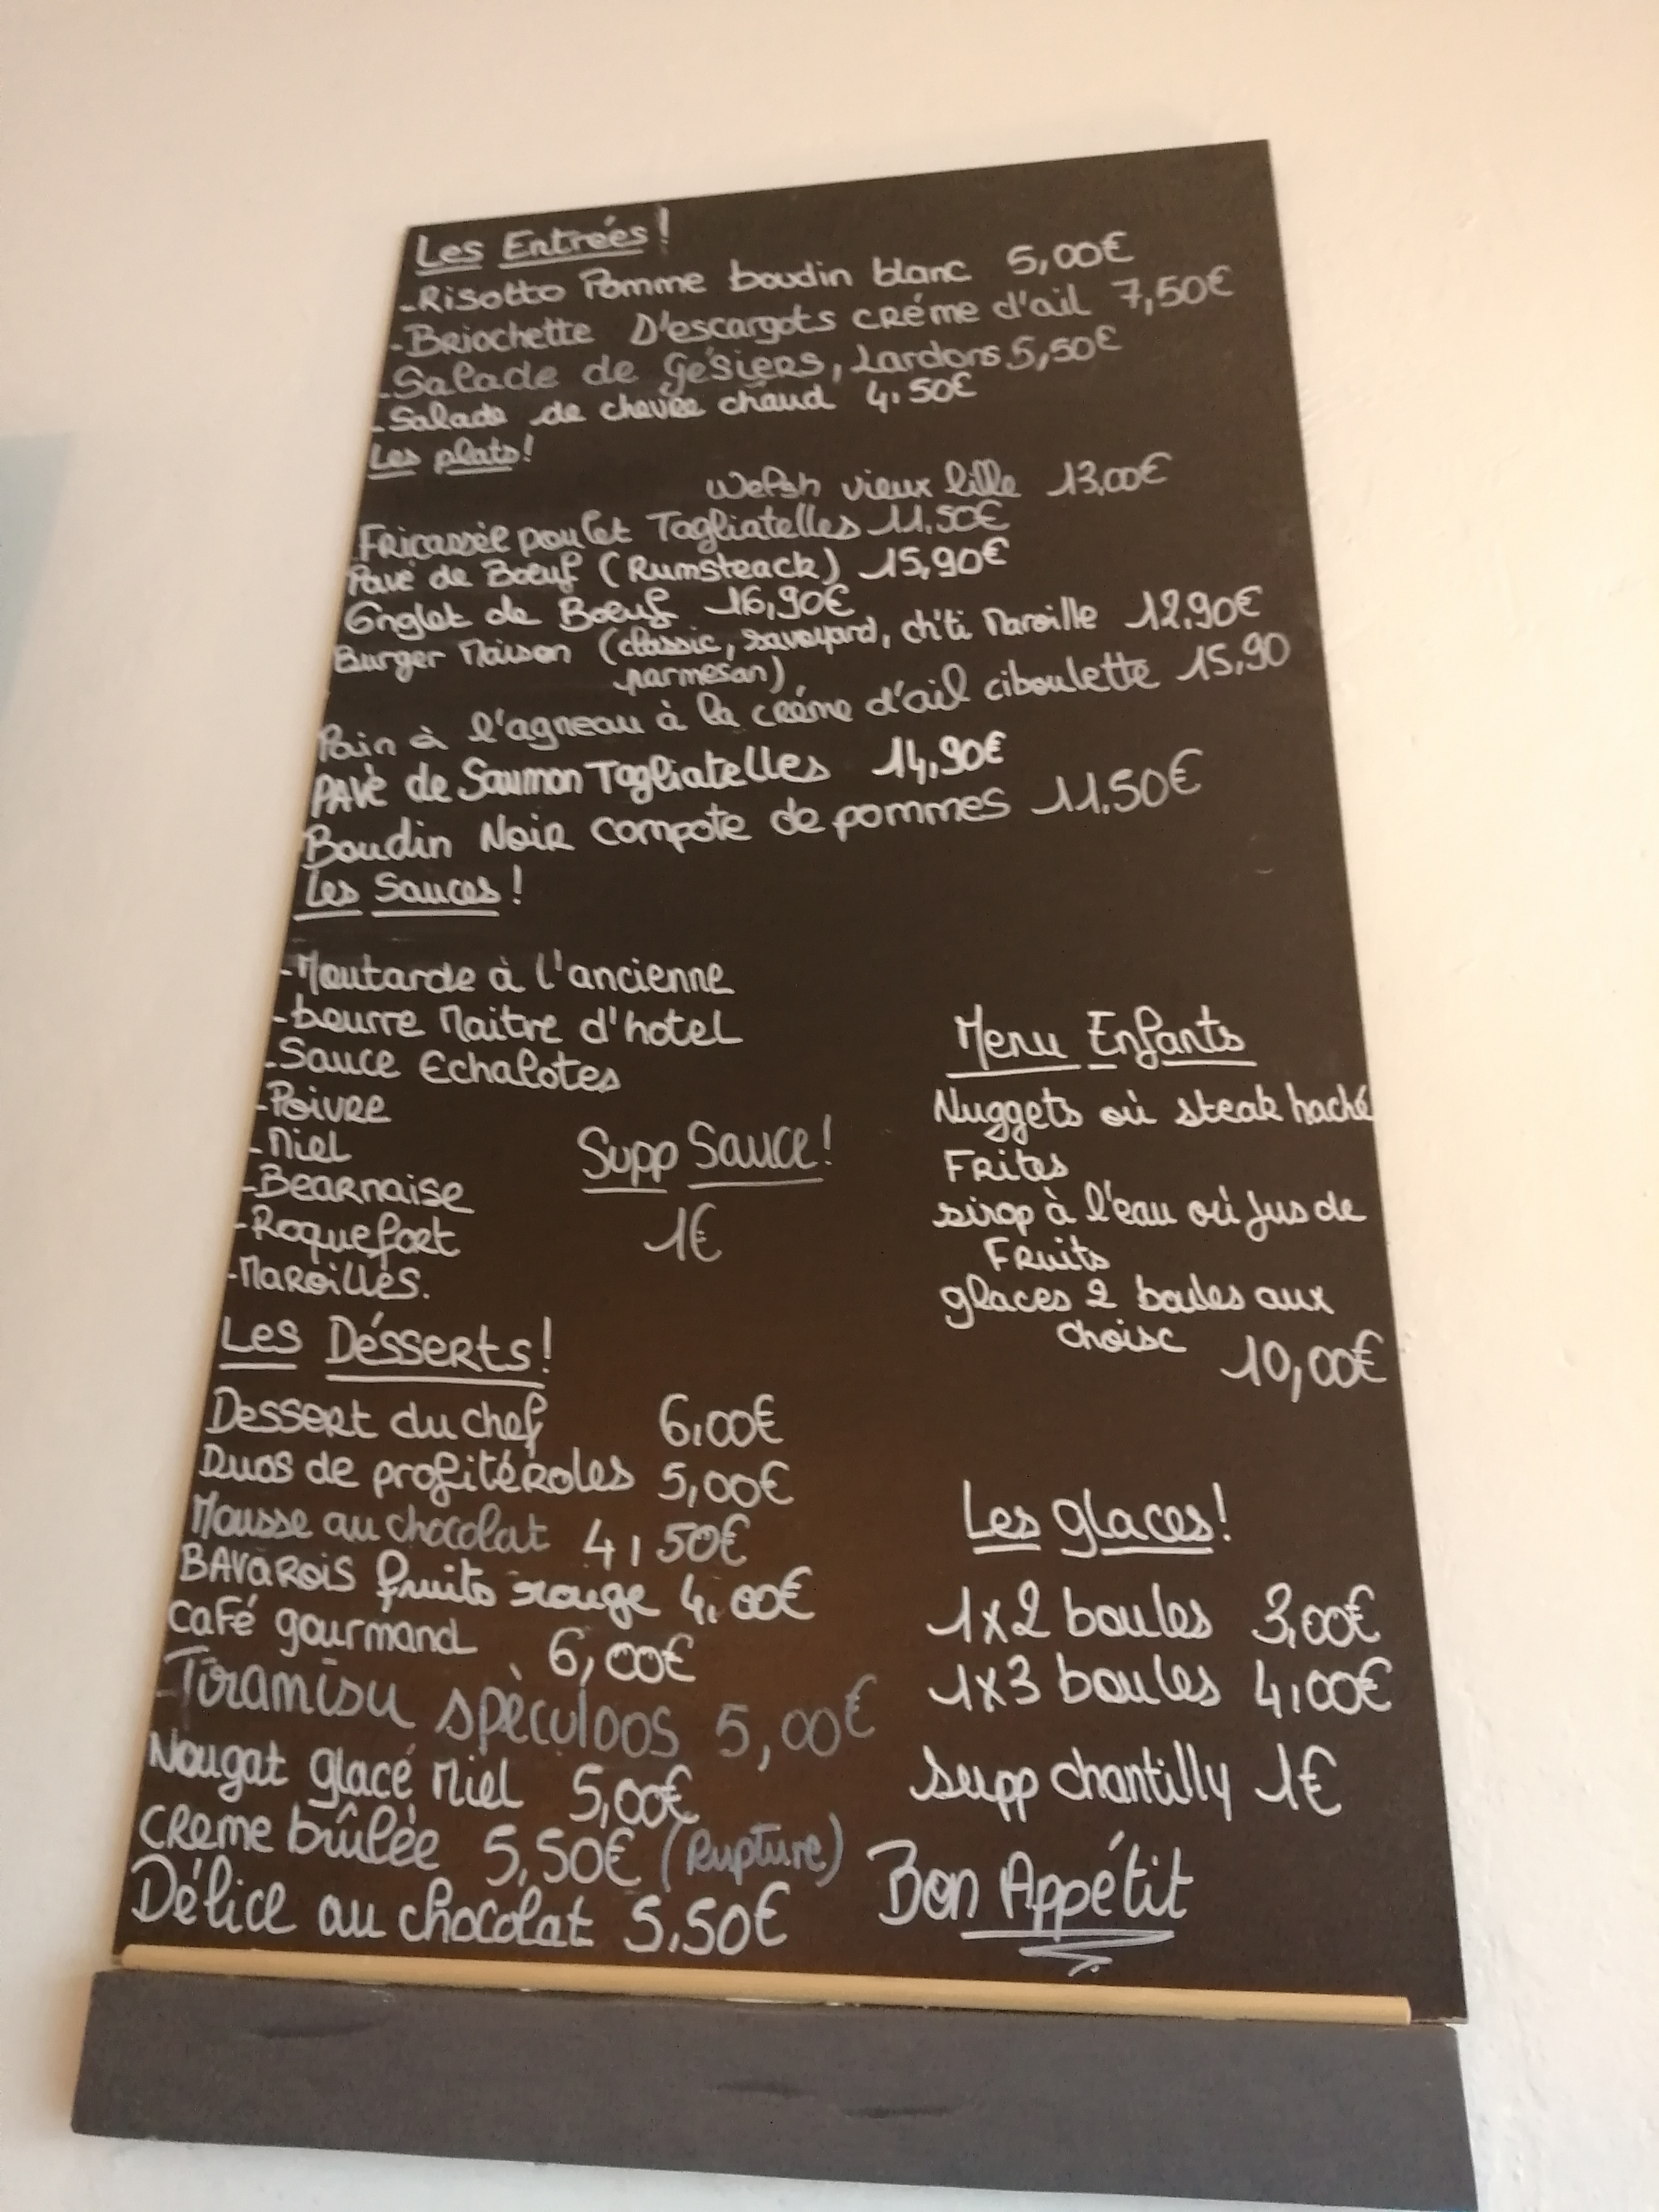 Les Entrées!
-Risotto Pomme boudin blanc 5,00€
-Briochette D'escargots créme d'ail 7,50€
-Salade de gésiers, Lardons 5,50€
-Salade de chèvre chaud 4,50€
Les plats!
Welsh vieux lille 13,00€
Fricassée poulet Tagliatelles 11,50€
Pavé de Boeuf (Rumsteack) 15,90€
Onglet de Boeuf 16,90€
Burger Maison (classic, savoyard, ch'ti Maroille 12,90€
parmesan)
Pain à l'agneau à la créme d'ail ciboulette 15,90
PAVè de Saumon Tagliatelles 14,90€
Boudin Noir compote de pommes 11,50€
Les Sauces!
-Moutarde à l'ancienne
-beurre Maitre d'hotel
-Sauce Echalotes
-Poivre
-Miel
-Bearnaise
-Roquefort
-Maroillès.
Supp Sauce!
1€
Menu Enfants
Nuggets où steak haché
Frites
sirop à l'eau où jus de
Fruits
glaces 2 boules aux
choisc
10,00€
Les Désserts!
Dessert du chef 6,00€
Duos de profitéroles 5,00€
Mousse au chocolat 4,50€
BAVAROIS fruits rouge 4,00€
café gourmand 6,00€
Tiramisu spèculoos 5,00€
Nougat glacé Miel 5,00€
creme brûlèe 5,50€ (Rupture)
Délice au chocolat 5,50€
Les glaces!
1x2 boules 3,00€
1x3 boules 4,00€
supp chantilly 1€
Bon Appétit